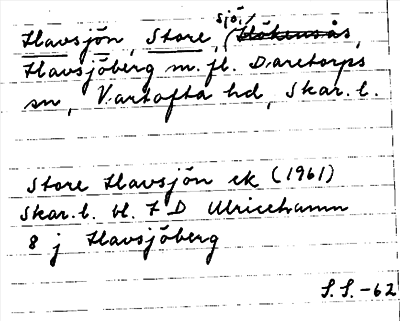 Havsjön, Store, sjö, i Hökensås,
Havsjöberg m. fl. Daretorps
sn, Vartofta hd, Skar. l.
Store Havsjön ek (1961)
Skar. l. bl. 7 D Ulricehamn
8 j Havsjöberg
S.S. -62